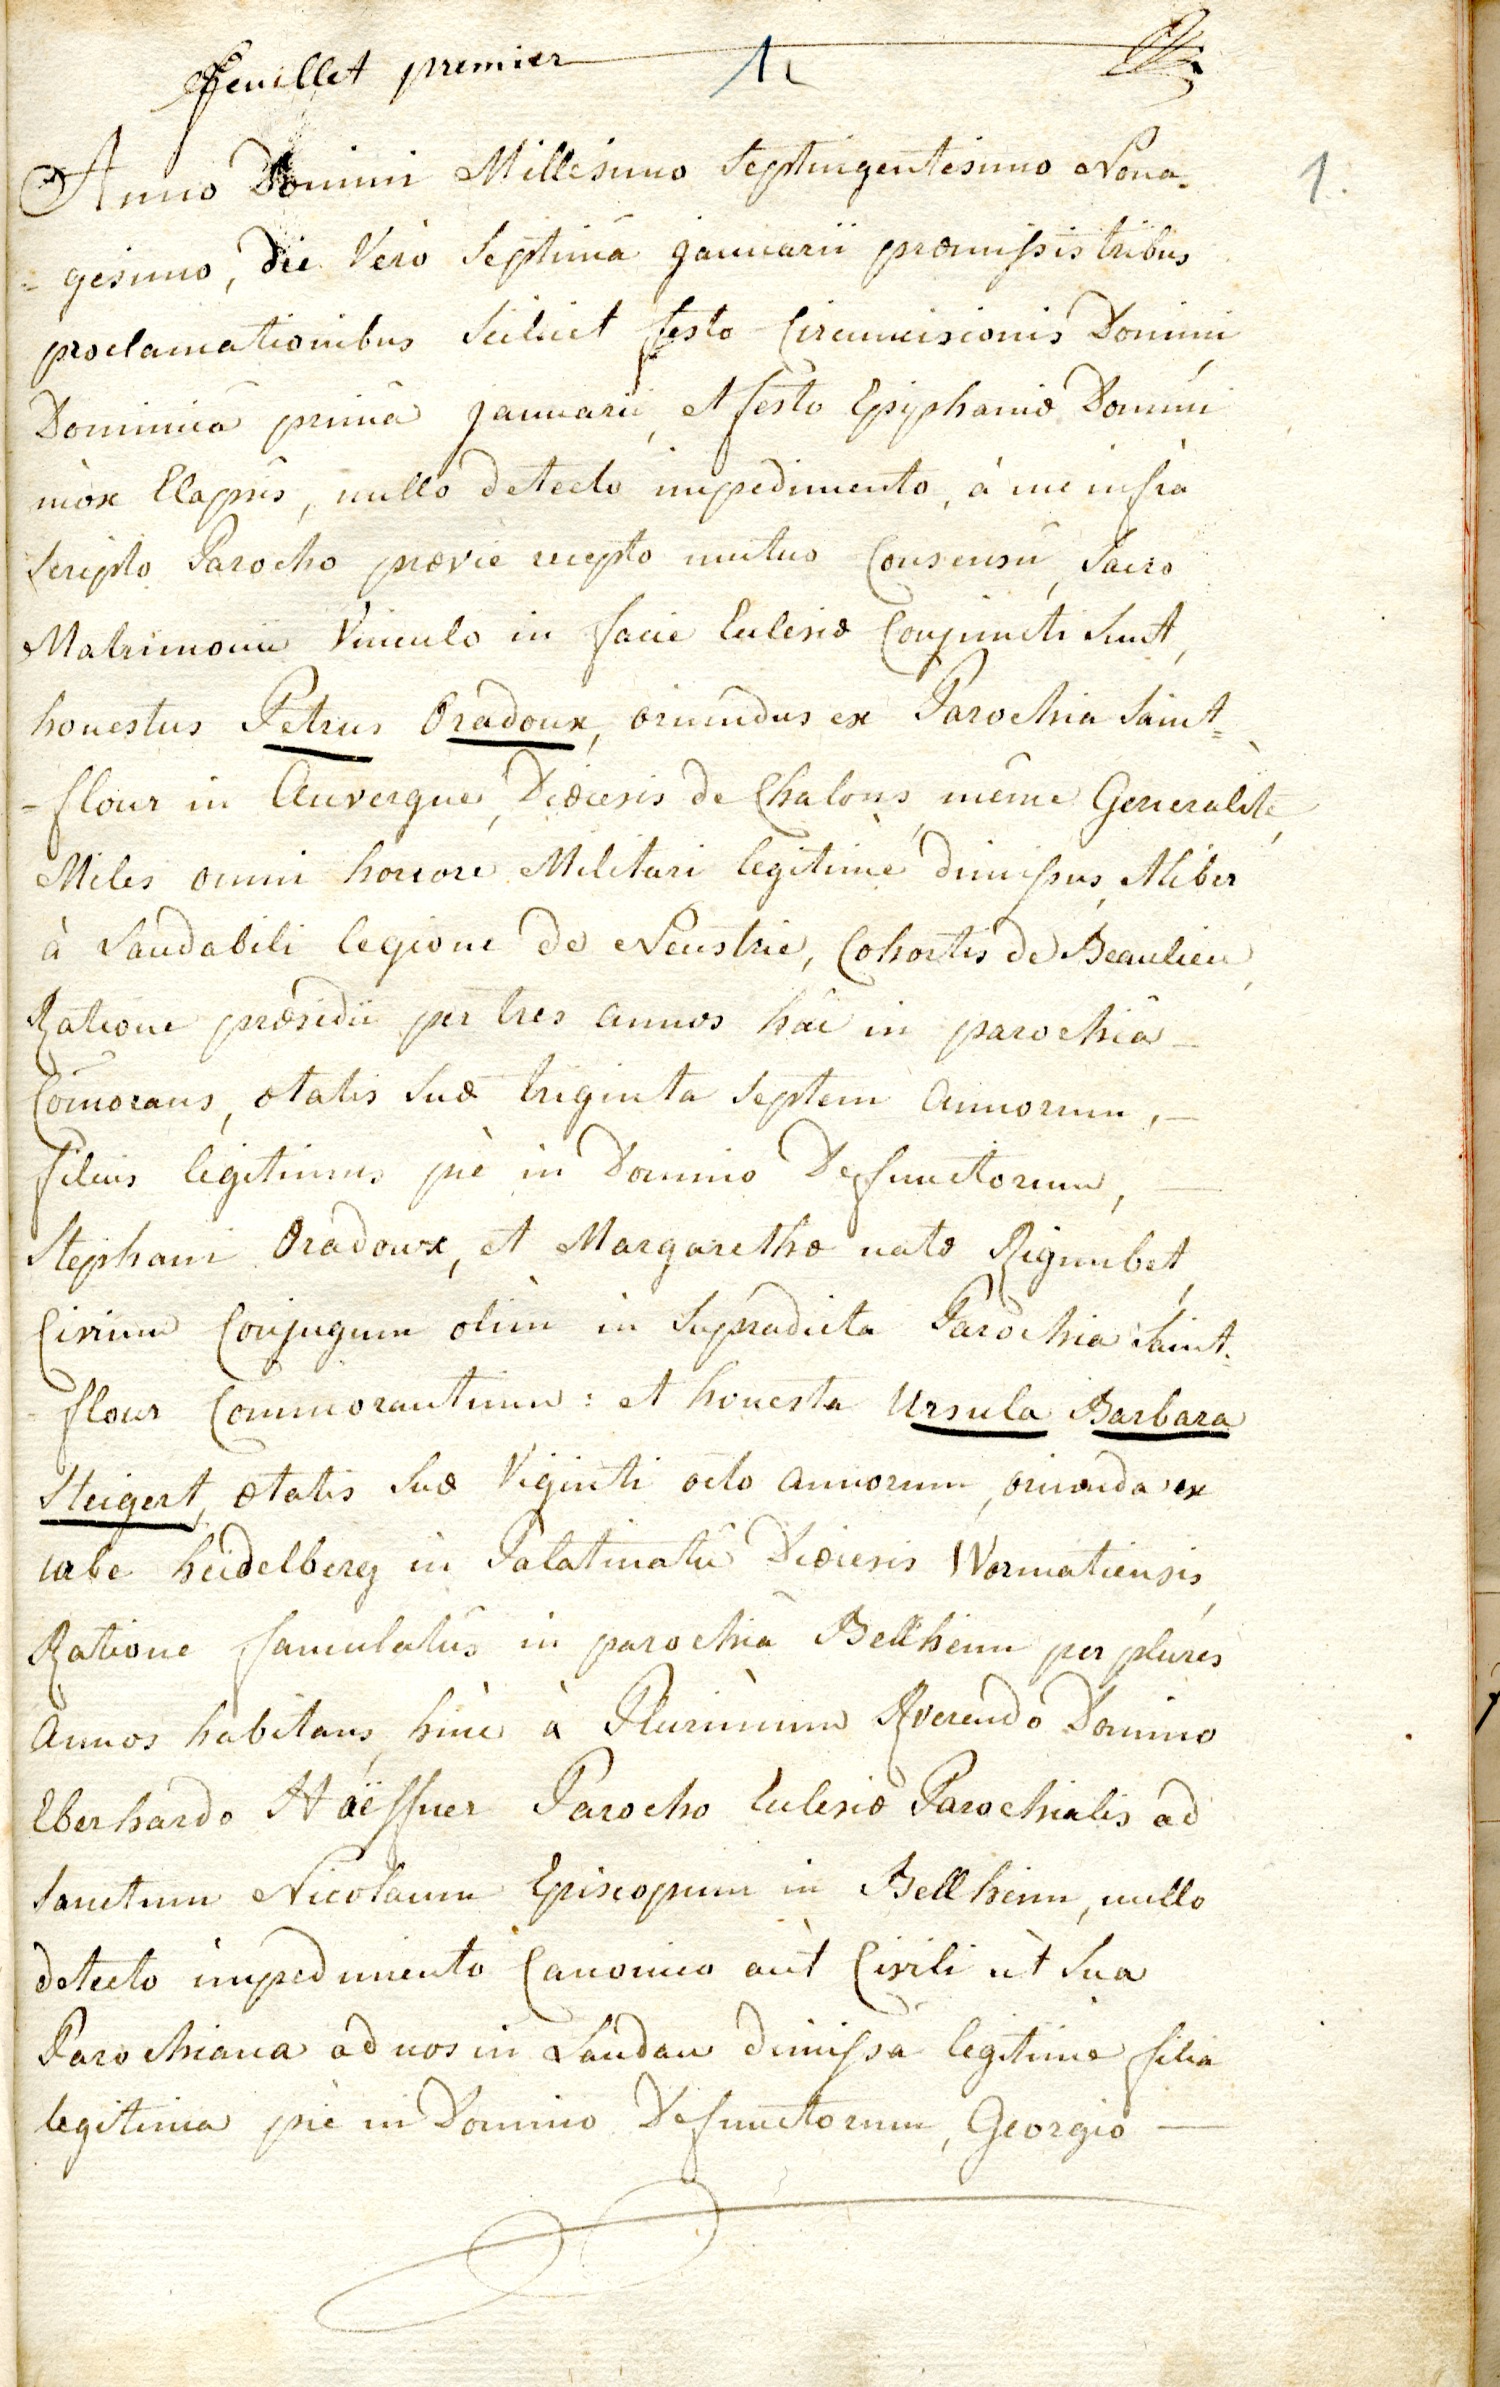 feuillet premier 1.
1.
Anno Domini Millesimo Septingentesimo Nona-
= gesimo, die Verò Septimâ januarii præmissis tribus
proclamationibus Scilicet festo Circumcisionis Domini,
Dominicâ primâ januarii, et festo Epiphaniæ Domini
mòx Elapsis, nullo detecto impedimento, à me infrà
Scripto Parocho prævie recepto mutuo Consensu, Sacro
Matrimonii Vinculo in facie Ecclesiæ Conjuncti Sunt,
honestus Petrus Oradoux, oriundus ex Parochia Saint=
= flour in Auvergne, Diœcesis de Chalons, même Generalité,
Miles omni honore Militari legitimè dimissus, et liber
à Laudabili legione de Neustrie, Cohortis de Beaulieu,
Ratione præsidii per tres annos hâc in parochiâ –
Com̄orans, ætatis suæ triginta septem annorum, –
filius legitimus piè in Domino Defunctorum, –
Stephani Oradoux, et Margarethæ natæ Rigumbet,
Civium Conjugum olìm in Supradicta Parochia Saint-
- flour Commorantium : et honesta Ursula Barbara
Steigert, ætatis suæ Viginti octo annorum, oriunda ex
urbe heidelberg in Palatinatû Diœcesis Wormatiensis,
Ratione famulatûs in parochiâ Bellheim per plures
annos habitans, hìnc à Plurimùm Rverendo Domino
Eberhardo Haëffner Parocho Ecclesiæ Parochialis ad
Sanctum Nicolaum Episcopum in Bellheim, nullo
detecto impedimento Canonico aùt Civili ùt Sua
Parochiana ad nos in Landau dimissa legitime filia
legitima piè in Domino Defunctorum, Georgio –